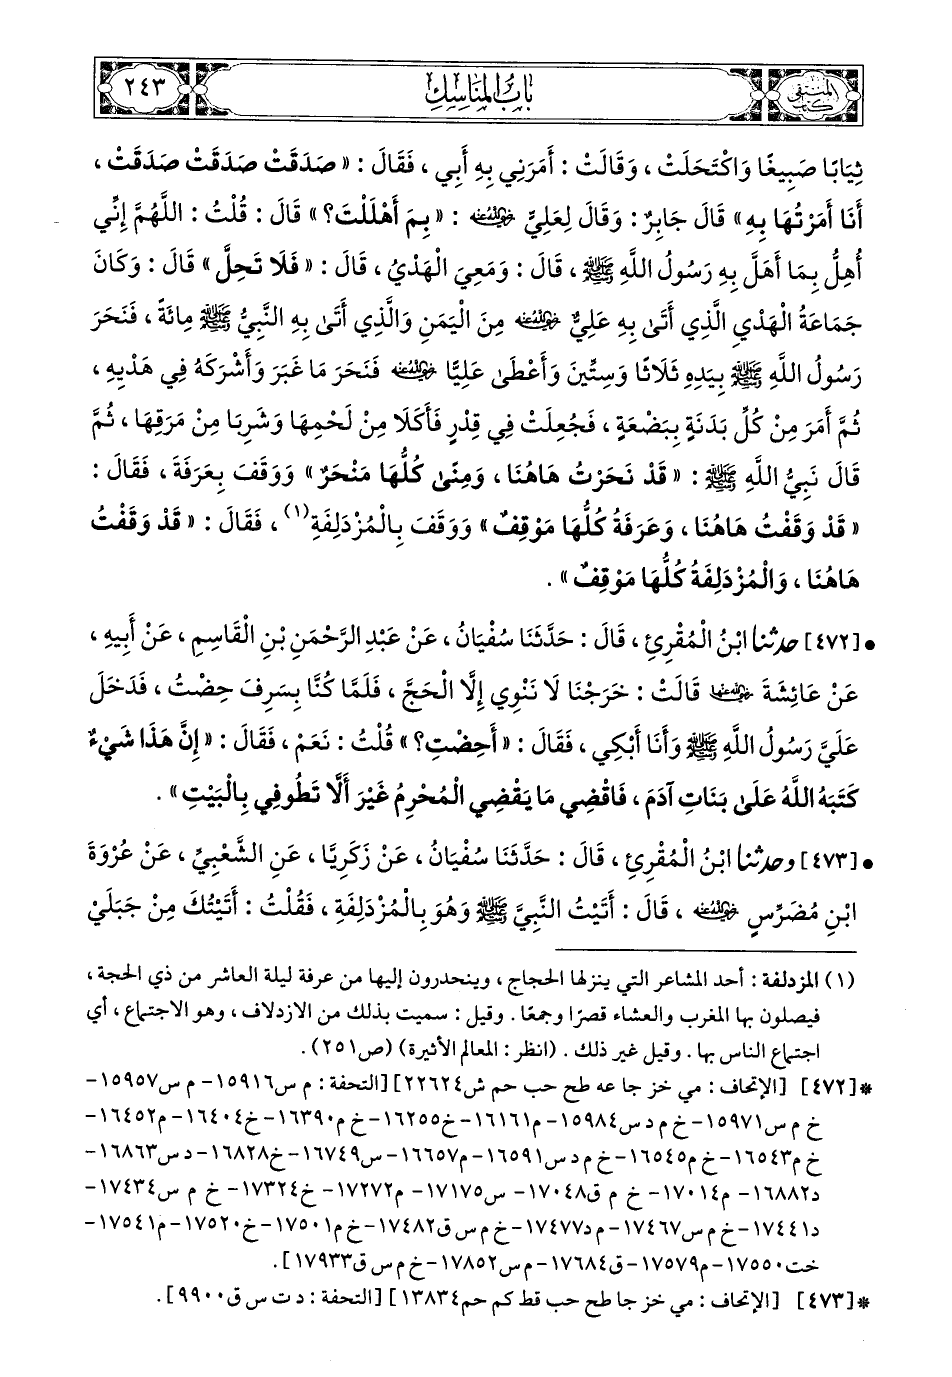 المنتقى كتاب
باب المناسك
٢٤٣
ثِيَابًا صَبِيغًا وَاكْتَحَلَتْ ، وَقَالَتْ : أَمَرَنِي بِهِ أَبِي ، فَقَالَ : « صَدَقَتْ صَدَقَتْ صَدَقَتْ ،
أَنَا أَمَرْتُهَا بِهِ » قَالَ جَابِرٌ : وَقَالَ لِعَلِيٍّ رضي الله عنه : « بِمَ أَهْلَلْتَ؟ » قَالَ : قُلْتُ : اللَّهُمَّ إِنِّي
أُهِلُّ بِمَا أَهَلَّ بِهِ رَسُولُ اللَّهِ ﷺ ، قَالَ : وَمَعِيَ الْهَدْيُ ، قَالَ : « فَلَا تَحِلَّ » قَالَ : وَكَانَ
جَمَاعَةُ الْهَدْيِ الَّذِي أَتَىٰ بِهِ عَلِيٌّ رضي الله عنه مِنَ الْيَمَنِ وَالَّذِي أَتَىٰ بِهِ النَّبِيُّ ﷺ مِائَةً ، فَنَحَرَ
رَسُولُ اللَّهِ ﷺ بِيَدِهِ ثَلَاثًا وَسِتِّينَ وَأَعْطَىٰ عَلِيًّا رضي الله عنه فَنَحَرَ مَا غَبَرَ وَأَشْرَكَهُ فِي هَدْيِهِ ،
ثُمَّ أَمَرَ مِنْ كُلِّ بَدَنَةٍ بِبَضْعَةٍ ، فَجُعِلَتْ فِي قِدْرٍ فَأَكَلَا مِنْ لَحْمِهَا وَشَرِبَا مِنْ مَرَقِهَا ، ثُمَّ
قَالَ نَبِيُّ اللَّهِ ﷺ : « قَدْ نَحَرْتُ هَاهُنَا ، وَمِنًىٰ كُلُّهَا مَنْحَرٌ » وَوَقَفَ بِعَرَفَةَ ، فَقَالَ :
« قَدْ وَقَفْتُ هَاهُنَا ، وَعَرَفَةُ كُلُّهَا مَوْقِفٌ » وَوَقَفَ بِالْمُزْدَلِفَةِ(١) ، فَقَالَ : « قَدْ وَقَفْتُ
هَاهُنَا ، وَالْمُزْدَلِفَةُ كُلُّهَا مَوْقِفٌ » .
• [٤٧٢] حدثنا ابْنُ الْمُقْرِئِ ، قَالَ : حَدَّثَنَا سُفْيَانُ ، عَنْ عَبْدِ الرَّحْمَنِ بْنِ الْقَاسِمِ ، عَنْ أَبِيهِ ،
عَنْ عَائِشَةَ رضي الله عنها قَالَتْ : خَرَجْنَا لَا نَنْوِي إِلَّا الْحَجَّ ، فَلَمَّا كُنَّا بِسَرِفَ حِضْتُ ، فَدَخَلَ
عَلَيَّ رَسُولُ اللَّهِ ﷺ وَأَنَا أَبْكِي ، فَقَالَ : « أَحِضْتِ؟ » قُلْتُ : نَعَمْ ، فَقَالَ : « إِنَّ هَذَا شَيْءٌ
كَتَبَهُ اللَّهُ عَلَىٰ بَنَاتِ آدَمَ ، فَاقْضِي مَا يَقْضِي الْمُحْرِمُ غَيْرَ أَلَّا تَطُوفِي بِالْبَيْتِ » .
• [٤٧٣] وحدثنا ابْنُ الْمُقْرِئِ ، قَالَ : حَدَّثَنَا سُفْيَانُ ، عَنْ زَكَرِيَّا ، عَنِ الشَّعْبِيِّ ، عَنْ عُرْوَةَ
ابْنِ مُضَرِّسٍ رضي الله عنه ، قَالَ : أَتَيْتُ النَّبِيَّ ﷺ وَهُوَ بِالْمُزْدَلِفَةِ ، فَقُلْتُ : أَتَيْتُكَ مِنْ جَبَلَيْ
(١) المزدلفة : أحد المشاعر التي ينزلها الحجاج ، وينحدرون إليها من عرفة ليلة العاشر من ذي الحجة ،
فيصلون بها المغرب والعشاء قصرًا وجمعًا . وقيل : سميت بذلك من الازدلاف ، وهو الاجتماع ، أي
اجتماع الناس بها . وقيل غير ذلك . (انظر : المعالم الأثيرة) (ص٢٥١) .
*[٤٧٢] [الإتحاف : مي خز جا عه طح حب حم ش٢٢٦٢٤] [التحفة : م س١٥٩١٦- م س١٥٩٥٧-
خ م س١٥٩٧١- خ م د س١٥٩٨٤- م١٦١٦١- خ١٦٢٥٥- خ م١٦٣٩٠- خ١٦٤٠٤- م١٦٤٥٢-
خ م١٦٥٤٣- خ م١٦٥٤٥- خ م د س١٦٥٩١- م١٦٦٥٧- س١٦٧٤٩- خ١٦٨٢٨- د س١٦٨٦٣-
د١٦٨٨٢- م١٧٠١٤- خ م ق١٧٠٤٨- س١٧١٧٥- م١٧٢٧٢- خ١٧٣٢٤- خ م س١٧٤٣٤-
د١٧٤٤١- خ م س١٧٤٦٧- م د١٧٤٧٧- خ م س ق١٧٤٨٢- خ م١٧٥٠١- خ١٧٥٢٠- م١٧٥٤١-
خت١٧٥٥٠- م١٧٥٧٩- ق١٧٦٨٤- م س١٧٨٥٢- خ م س ق١٧٩٣٣] .
*[٤٧٣] [الإتحاف : مي خز جا طح حب قط كم حم١٣٨٣٤] [التحفة : د ت س ق٩٩٠٠] .